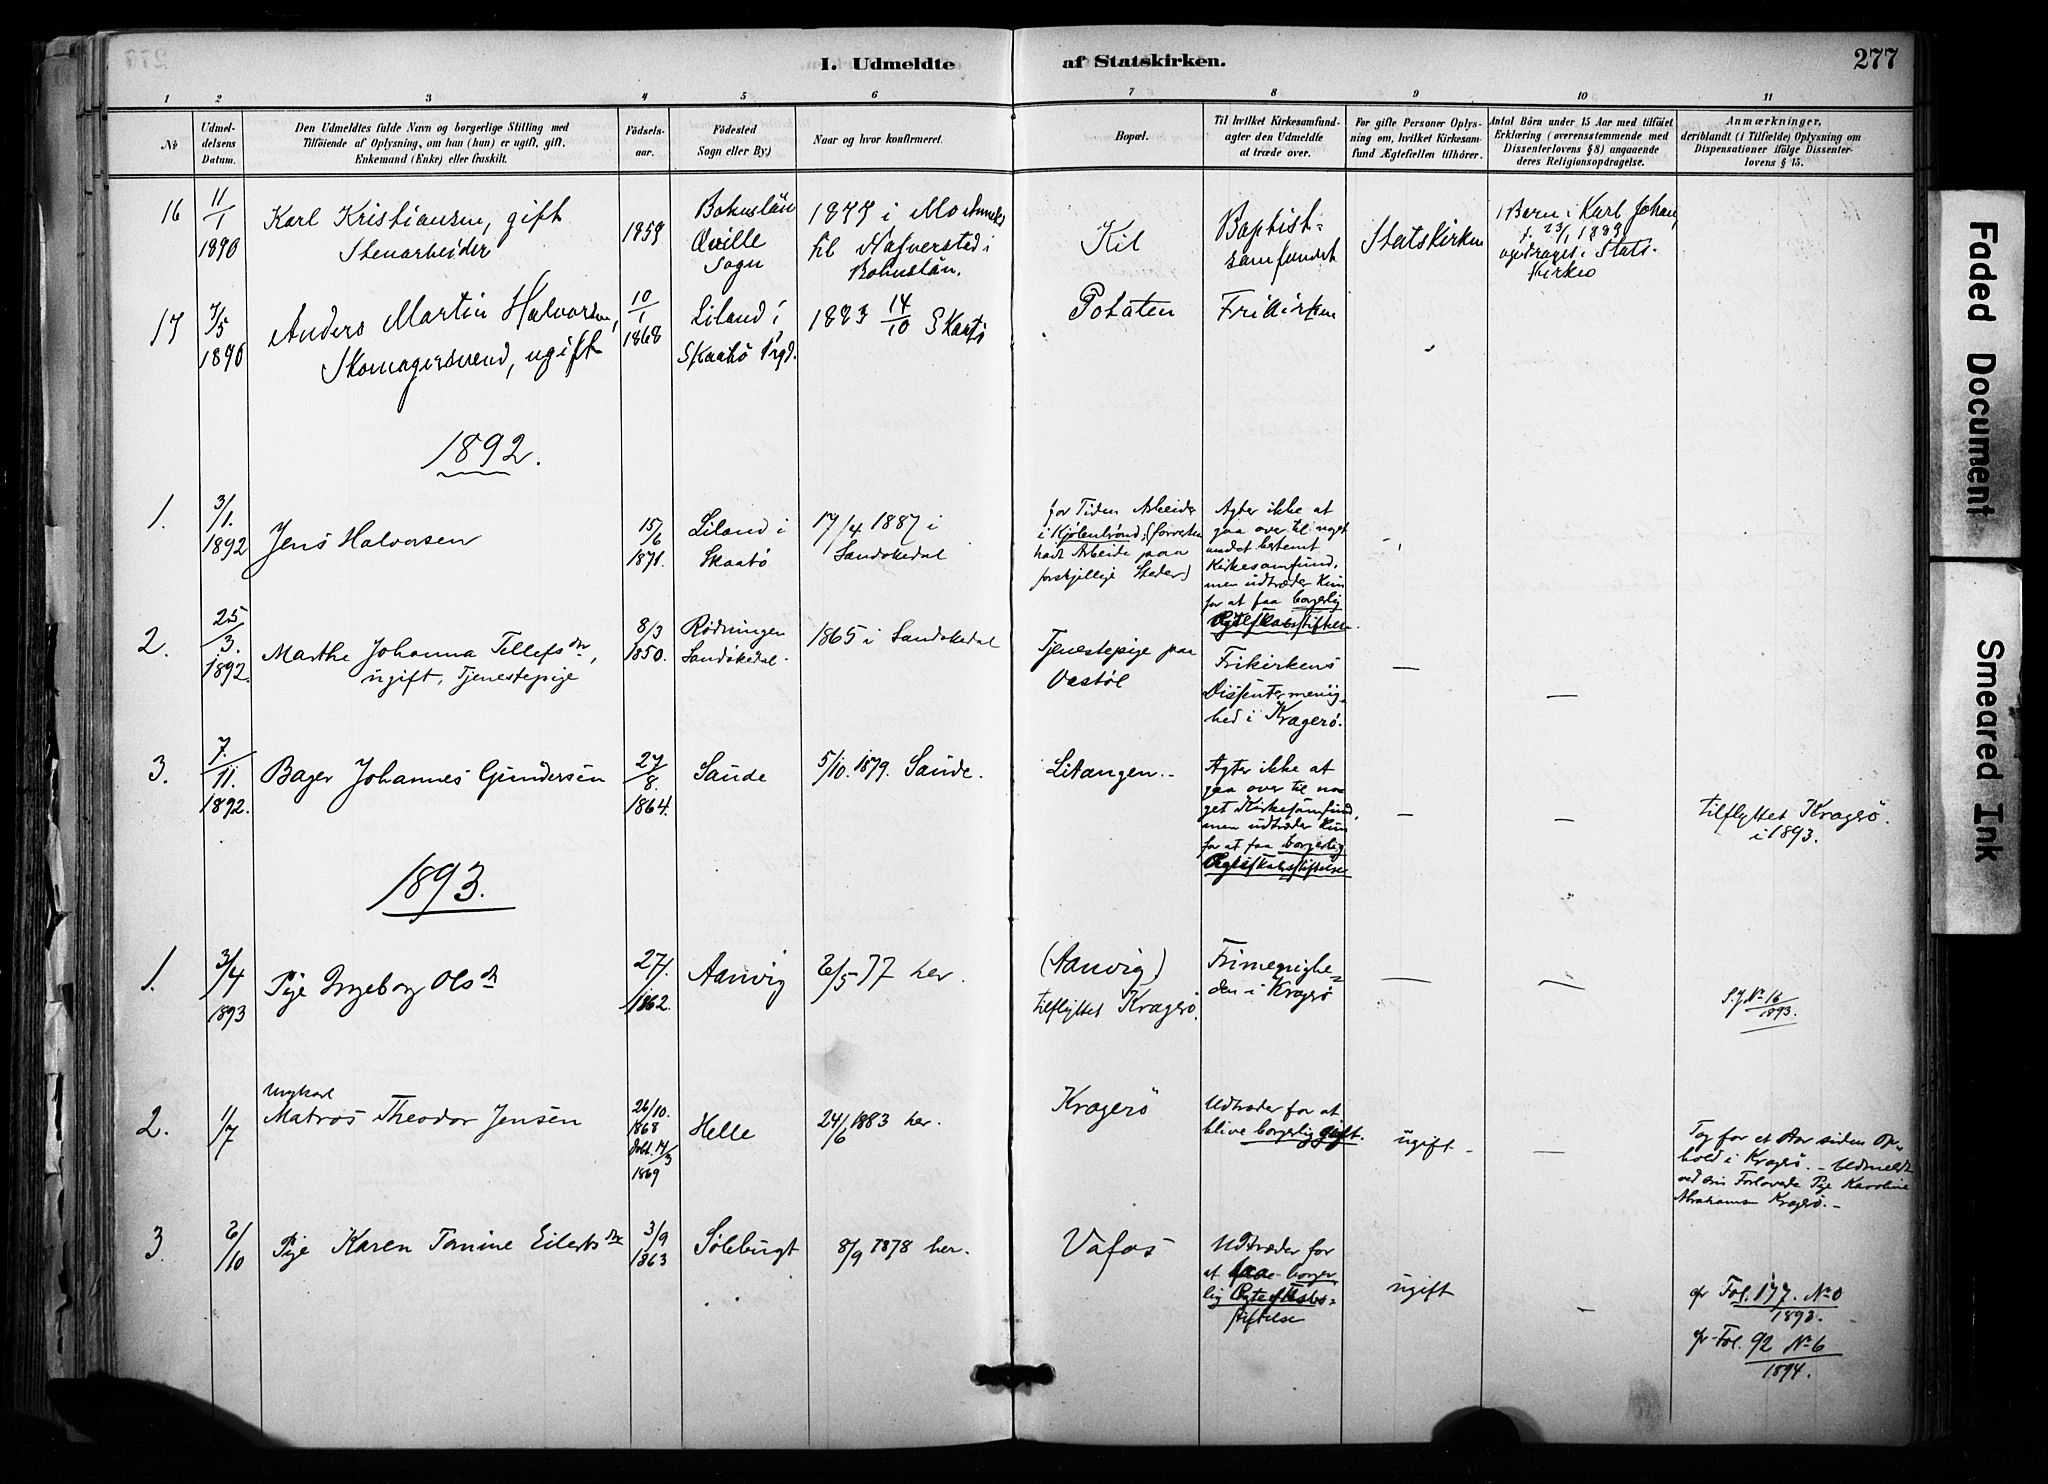 I. Udmeldte af Statskirken.
277
1 2 3 4 5 6 7 8 9 10 11
No
Udmel-
delsens
Datum.
Den Udmeldtes fulde Navn og borgerlige Stilling med
Tilföiende af Oplysning, om han (hun) er ugift, gift,
Enkemand (Enke) eller fraskilt.
Födsels-
aar.
Födested
Sogn eller By.)
Naar og hvor konfirmeret.
Bopæl.
Til hvilket Kirkesamfund
agter den Udmeldte
at træde over.
For gifte Personer Oplys-
ning om, hvilket Kirkesam-
fund Ægtefællen tilhörer.
Antal Börn under 15 Aar med tilföiet
Erklæring (overensstemmende med
Dissenterlovens § 8) angaaende
deres Religionsopdragelse.
Anmærkninger,
deriblandt (i Tilfælde) Oplysning om
Dispensationer ifölge Dissenter-
lovens § 15.
16
11/1
1890
Karl Kristiansen, gift
Stenarbeider
1859
Bohuslän
Qville
Sogn
1877 i Mo
til Hafversted i
Bohuslän.
Kil
Baptist-
samfundet
Statskirken
1 Barn: Karl Johan,
f. 23/1 1889,
opdrages i Stats-
kirken
17
7/5
1890
Anders Martin Halvorsen,
Skomagersvend, ugift
10/1
1868
Liland i
Skaatö Prgd.
1883 14/10 Skaatö
Potaten
Frikirken
1892.
1.
3/1.
1892
Jens Halvorsen
15/6
1871.
Liland i
Skaatö
17/4 1887 i
Sandökedal
for Tiden Arbeider
i Kjölenbrönd, (forresten
havt Arbeide paa
forskjellige Steder)
Agter ikke at
gaa over til noget
andet bestemt
Kirkesamfund,
men udtræder kun
for at faa borgerlig
Ægteskabsstiftelse.
2.
25/3.
1892.
Marthe Johanna Tellefsdtr,
ugift, Tjenestepige
8/3
1850.
Rödningen
Sandökedal.
1865 i Sandökedal
Tjenestepige paa
Vastöl
Frikirkens
Dissentermenig-
hed i Kragerö.
—
—
3.
7./11.
1892.
Bager Johannes Gundersen
27/8.
1864.
Saude
5/10. 1879. Saude.
Litangen.
Agter ikke at
gaa over til no-
get Kirkesamfund,
men udtræder kun
for at faa borgerlig
Ægteskabsstiftelse
—
—
tilflyttet Kragerö.
i 1893.
1893.
1.
3/4
1893
Pige Ingeborg Olsdtr
27/1.
1862.
Aanvig
6/5 77 her.
(Aanvig)
tilflyttet Kragerö.
Frimenighe-
den i Kragerö
—
—
S.J. No 16/1893.
2.
1/7
Ungkarl
Matros Theodor Jensen
26/10.
1868
döbt. 14/3
1869
Helle
24/6 1883 her.
Kragerö
Udtræder for at
blive borgerlig gift.
ugift
—
Tog for et Aar siden Op-
hold i Kragerö. — Udmeldt
ved sin Forlovede Pige Karoline
Abrahams Kragerö. —
3
6/10
Pige Karen Tomine Eilertsdtr
3/9
1863
Sölebugt
8/9 1878 her.
Vafos
Udtræder for
at faa borger-
lig Ægteskabs-
stiftelse
ugift
—
cfr Fol. 177. No 0
1893.
cfr Fol. 92 No 6
1894.
Faded Document
Smeared Ink